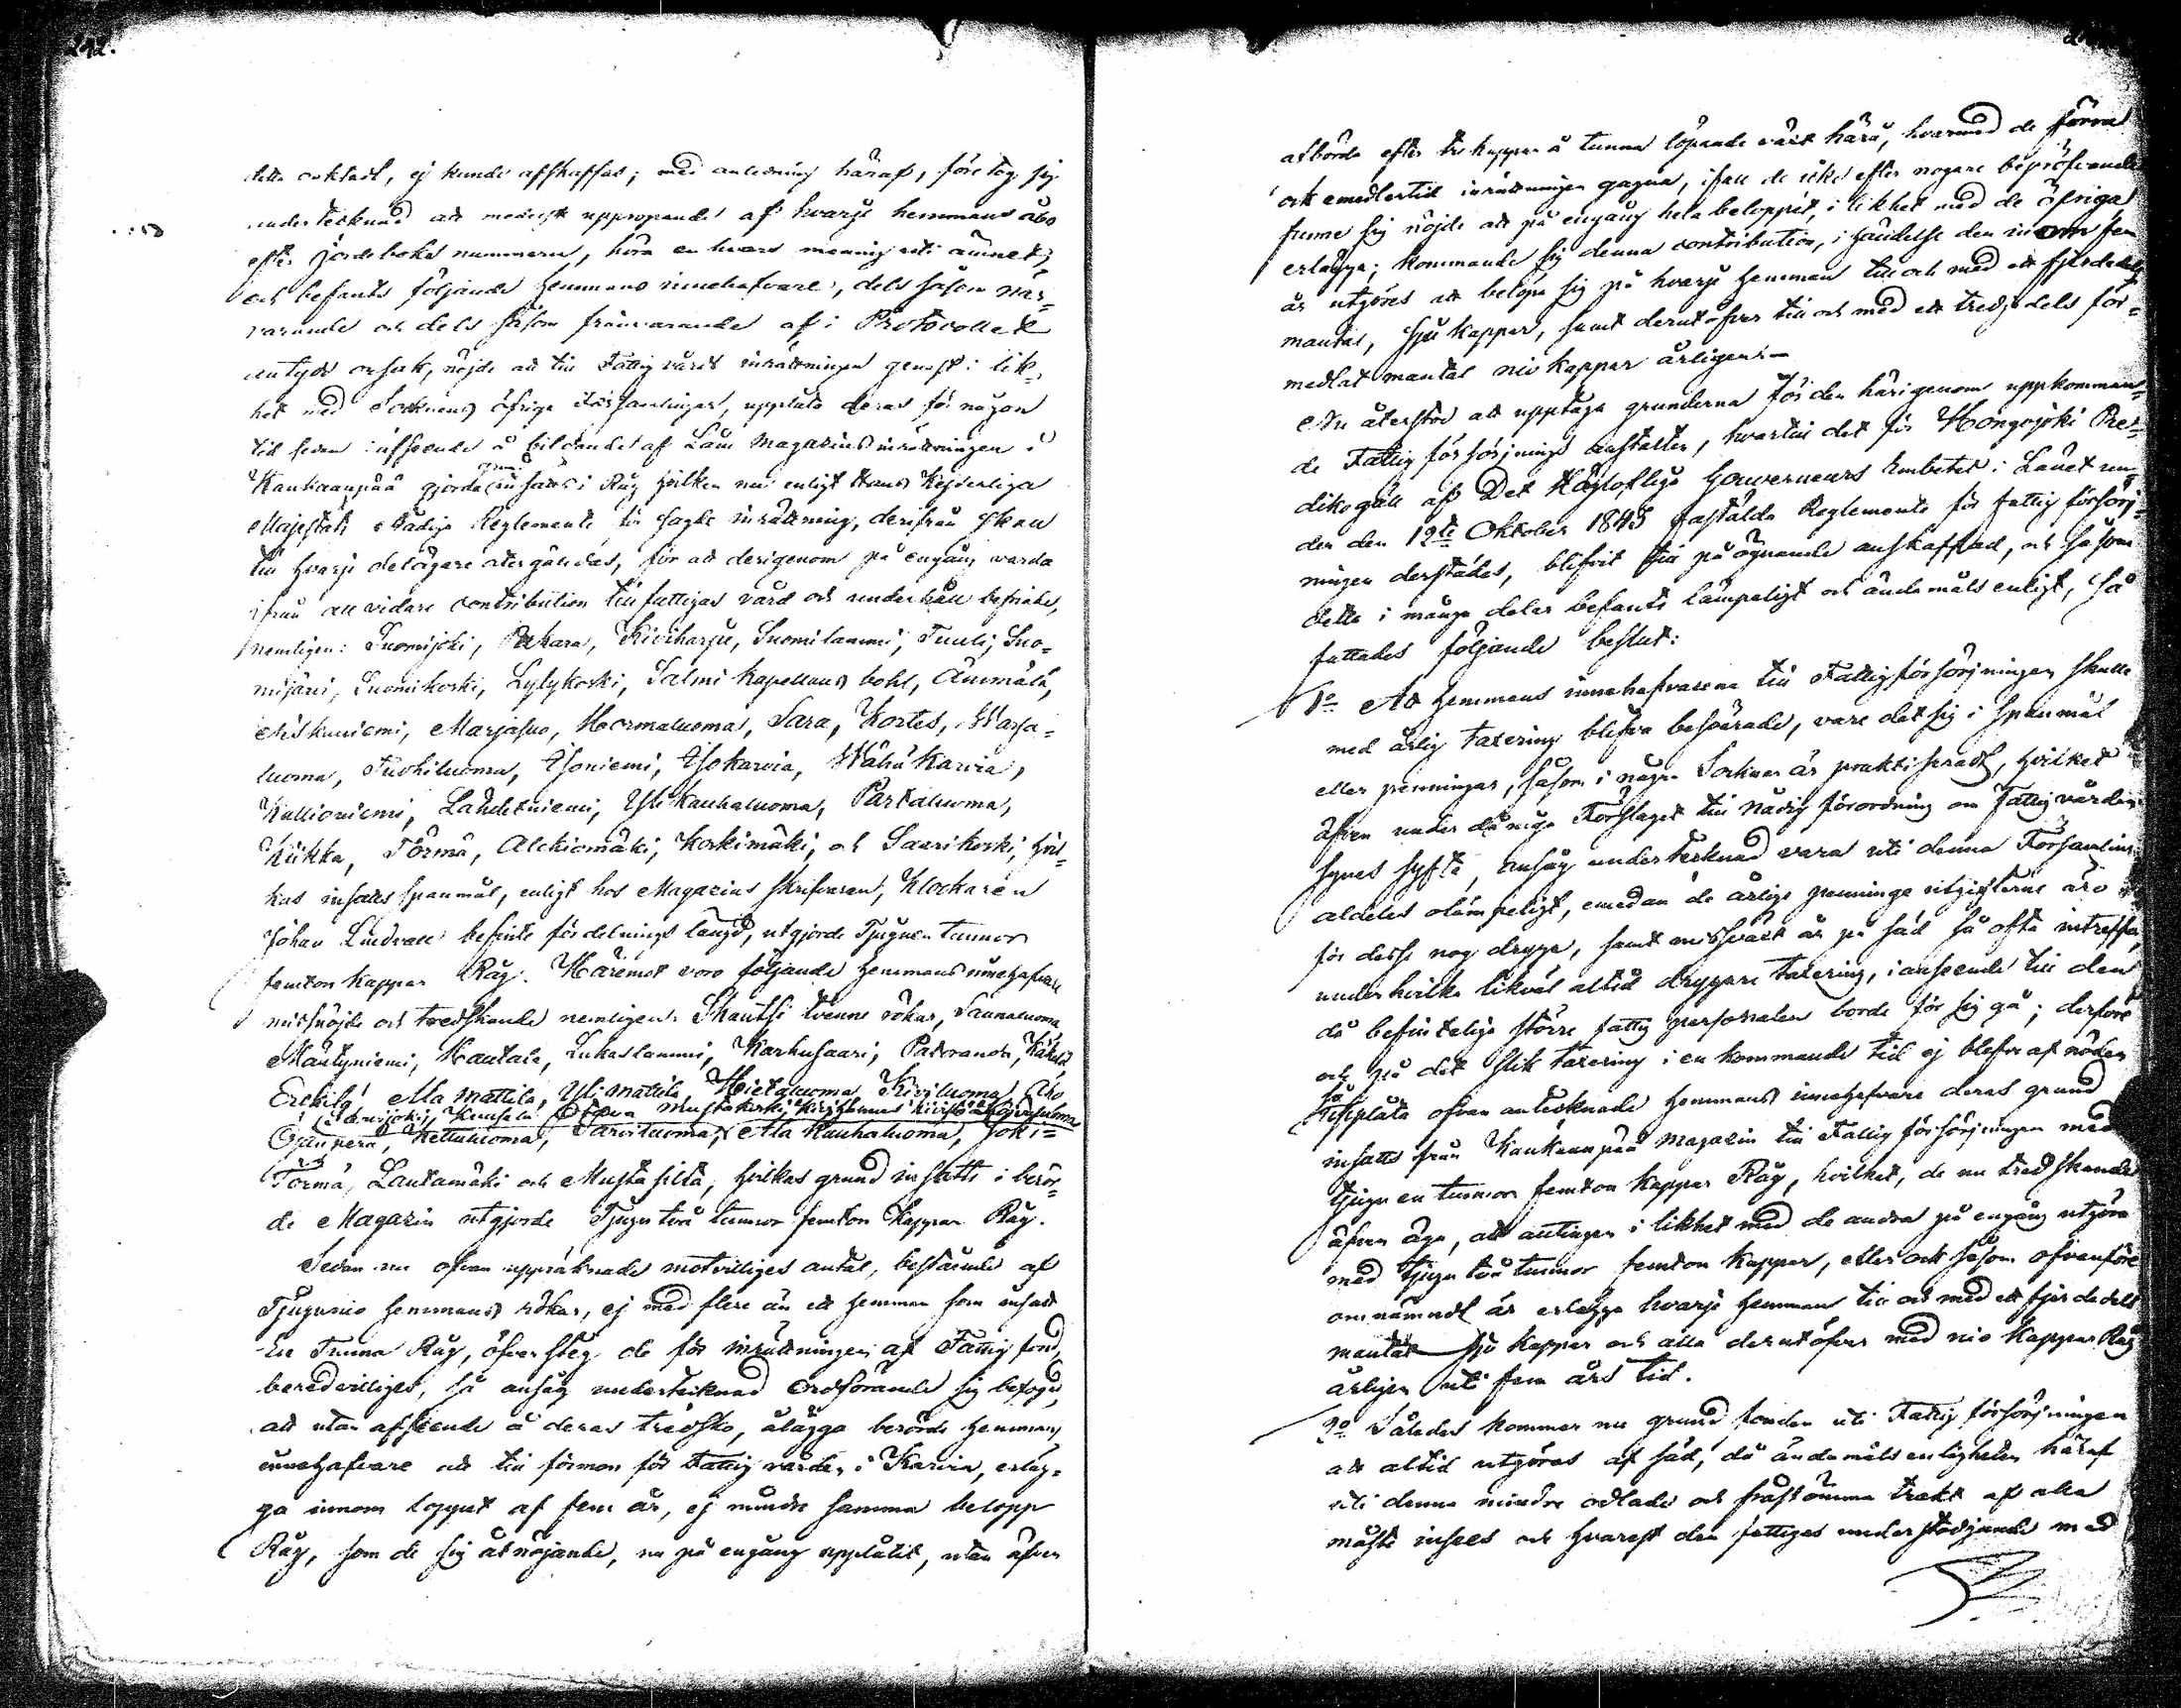 242.
detta oaktadt, ej kunde affkaffas; med anledning häraf, företog sig
undertecknad att medelst uppropandet af hvarje hemmans åbo
efter Jordeboks nummern, höra en hvars mening uti ämnet,
och befants följande Hemmans innehafvare, dels såsom när-
varande och dels såsom frånvarande af i Protocollet
antydd orsak, nöjde att till Fattigvårds inrättningen genast i lik-
het med Socknens öfriga Församlingar, upplåta deras för någon
tid sedan i afseende å bildandet af Låne Magazins inrättningen i
Kankaanpää gjorda grund insatts i Råg hvilken nu enligt Hans Kejserliga
Majestäts Nådiga Reglemente för sagde inrättning, derifrån skall
till hvarje delägare återgäldas, för att derigenom på engång warda
ifrån all vidare contribution till fattigas vård och underhåll befriade,
nemligen: Suomijoki, Pukara, Kiviharju, Suomilammi, Tuuli, Suo-
mijärvi, Suomikoski, Lylykoski, Salmi Kapellans bohl, Ämmälä,
Niskuniemi, Marjasuo, Heormaluoma, Sara, Kortes, Warsa-
luoma, Tuohiluoma, Isoniemi, Isokarvia, Wähä Karvia,
Kallioniemi, Lähdetniemi, Yli Kauhaluoma, Partaluoma,
Kiikka, Törmä, Alckiomäki, Koskimäki, och Saarikoski, hvil-
kas insatts spannmål, enligt hos Magazins skrifvaren, Klockaren
Johan Lindvall befinte fördelnings längd, utgjorde Tjuguen tunnor
femton kappar Råg. Häremot voro följande Hemmans innehafvare
missnöjde och tredskande nemligen: Skantsi tvenne rökar, Saunaluoma
Mäntyniemi, Hautala, Lukaslammi, Karhusaari, Patoranda,
Erckilä Ala Mattila, Yli Mattila Hietaluoma Kiviluoma Aho
Sarvijoki, Kuusela Mustakoski
Ojanperä, Kettuluoma, Sarviluoma, Ala Kauhaluoma, Joki-
Törmä, Lautamäki och Mustasilta, hvilkas grund insatts i berör-
de Magazin utgjorde Tjugutvå tunnor femton Kappar Råg.
Sedan nu ofvan uppräknade motvilliges antal, bestående af
Tjugunio hemmans rökar, ej med flere än ett hemman som insatt
En Tunna Råg, öfversteg de för inrättningen af Fattig fond,
beredvilliges, så ansåg undertecknad Ordförande sig befogad,
att utan afseende å deras tredsko, ålägga berörde hemmans
innehafvare att till förmon för Fattigvården i Karvia, erläg-
ga innom loppet af fem år, ej mindre samma belopp
Råg, som de sig åtnöjande, nu på engång upplåtit, utan äfven
afbörda efter tre kappar å tunna löpande växt härå, hvarmed de förra
ock emedlertid inrättningen gagna, ifall de icke efter nogare bepröfvande
funne sig nöjde att på engång hela beloppet, i likhet med de öfriga
erlägga; kommande sig denna contribution, i händelse den inom fem
år utgöres att belöpa sig på hvarje Hemman till och med ett fjerdedels
mantal, sju kappar, samt derutöfver till och med ett tredjedels för-
medlat mantal nio kappar årligen.
Nu återstod att upptaga grunderna för den härigenom uppkomman-
de Fattig försörjnings anstalten, hvartill det för Hongojoki Pre-
dikogäll af Det Höglofliga Gouverneurs Embetet i Länet un-
der den 12te Oktober 1843 fastälda Reglemente för fattig försörj-
ningen derstädes, blifvit till påögnande anskaffad, och såsom
detta i många delar befants lämpeligt och ändamåls enligt, så
fattades följande beslut:
1o Att Hemmans innehafvarena till Fattigförsörjningen skulle
med årlig taxering blifva besvärade, vare det sig i Spanmål
eller penningar, såsom i några Socknar är praktiseradt, hvilket
äfven under dånige Förslaget till nådig förordning om Fattigvården
synes syfta, ansåg undertecknad vara uti denna Församling
aldeles olämpeligt, emedan de årliga penninge utgifterne äro
för desse nog dryga, samt missväxt år på säd så ofta inträffa,
under hvilka likväl altid drygare taxering, i anseende till den
då befinteliga större fattig personalen borde för sig gå; derföre
och på det slik taxering i en kommande tid ej blefve af nöden
så upplåta ofvan antecknade Hemmans innehafvare deras grund
insatts från Kankaanpää magazin till Fattig försörjningen med
tjugu en tunnor femton kappar Råg, hvilket, de nu tredskande
äfven äga, att antingen i likhet med de andra på engång utgöra
med tjugu två tunnor femton kappar, eller ock såsom ofvanföre
omnämndt är erlägga hvarje Hemman till och med ett fjerdedels
mantal sju kappar och alla derutöfver med nio Kappar Råg
årligen uti fem års tid.
2o Således kommer nu grund fonden uti Fattig försörjningen
att altid utgöras af säd, då ändamåls enligheten häraf
uti denna mindre odlade och frostömma trakt af alla
måste inses och hvarest den fattiges understödjande med